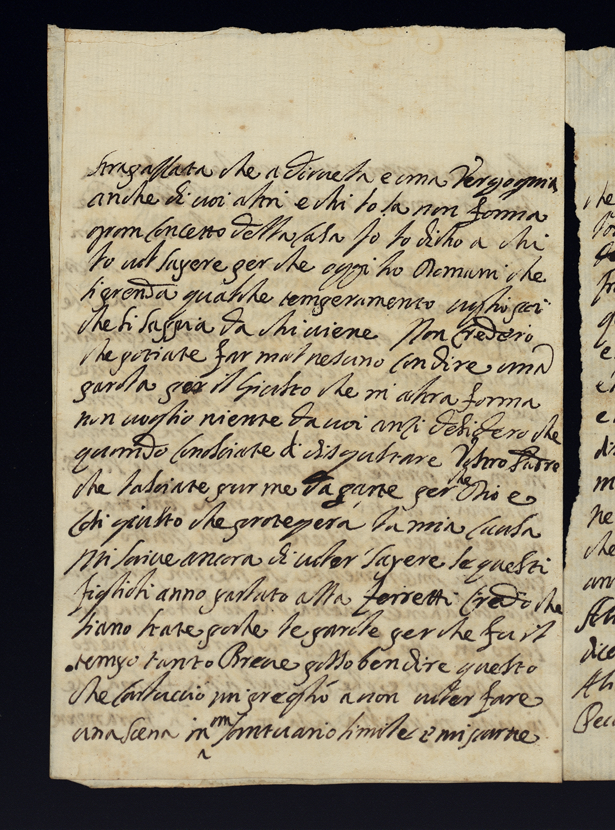 strapassata che a dirvela e una Vergogna
anche di voi altri e chi lo sa non forma
gran Concetto della Casa Io lo dicho a chi
lo vol sapere per che oggi ho Domani che
si prenda qualche temperamento voglio poi
che si sappia da chi viene Non Crederei
che potiate far mal nesuno Con dire una
parola per il Giusto che in altra forma
non voglio niente da voi anzi desidero che
quando Conosciate di disgustare Vostro Padre
che lasciate pur me da parte per che Dio e
Cosi giusto che protegera la mia Causa
Mi scrive ancora di voler sapere se questi
figlioli anno parlato alla Ferretti Credo che
siano state poche le parole per che fu il
tempo tanto Breve posso ben dire questo
che Carluccio mi pregho a non voler fare
una scena in un santuario simile e mi parve